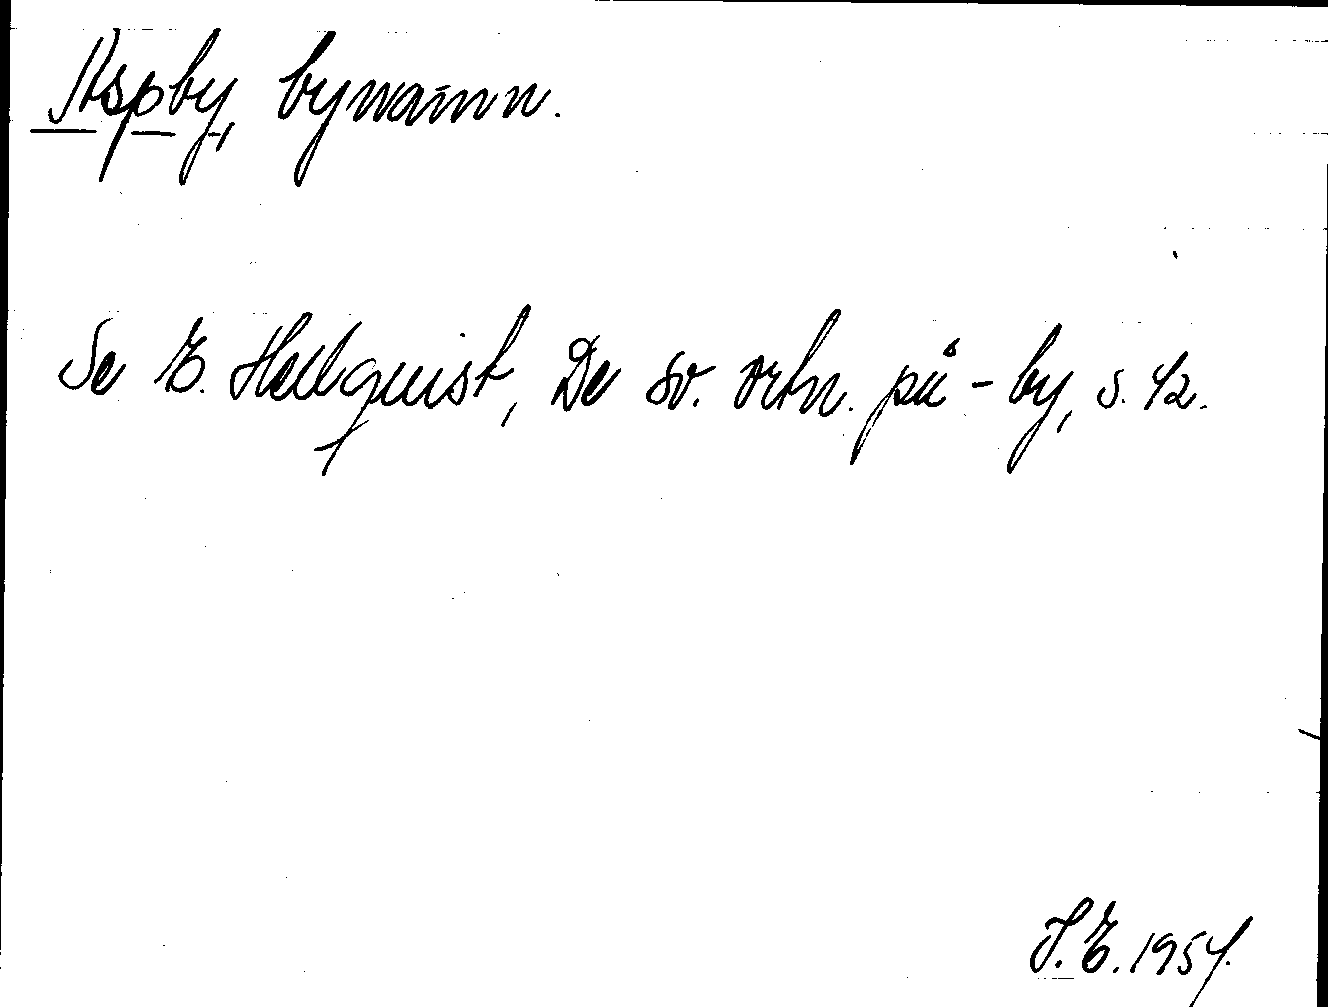 Aspby, bynamn.
Se E. Hellquist, De sv. ortn. på -by, s. 42.
S.E. 1954.